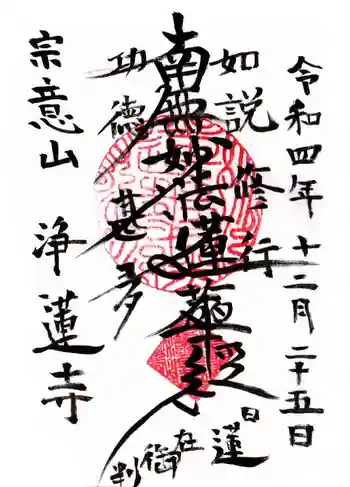 令和四年十二月二十五日
如説修行
南無妙法蓮華経
功徳甚多
日蓮
在御判
宗意山 浄蓮寺